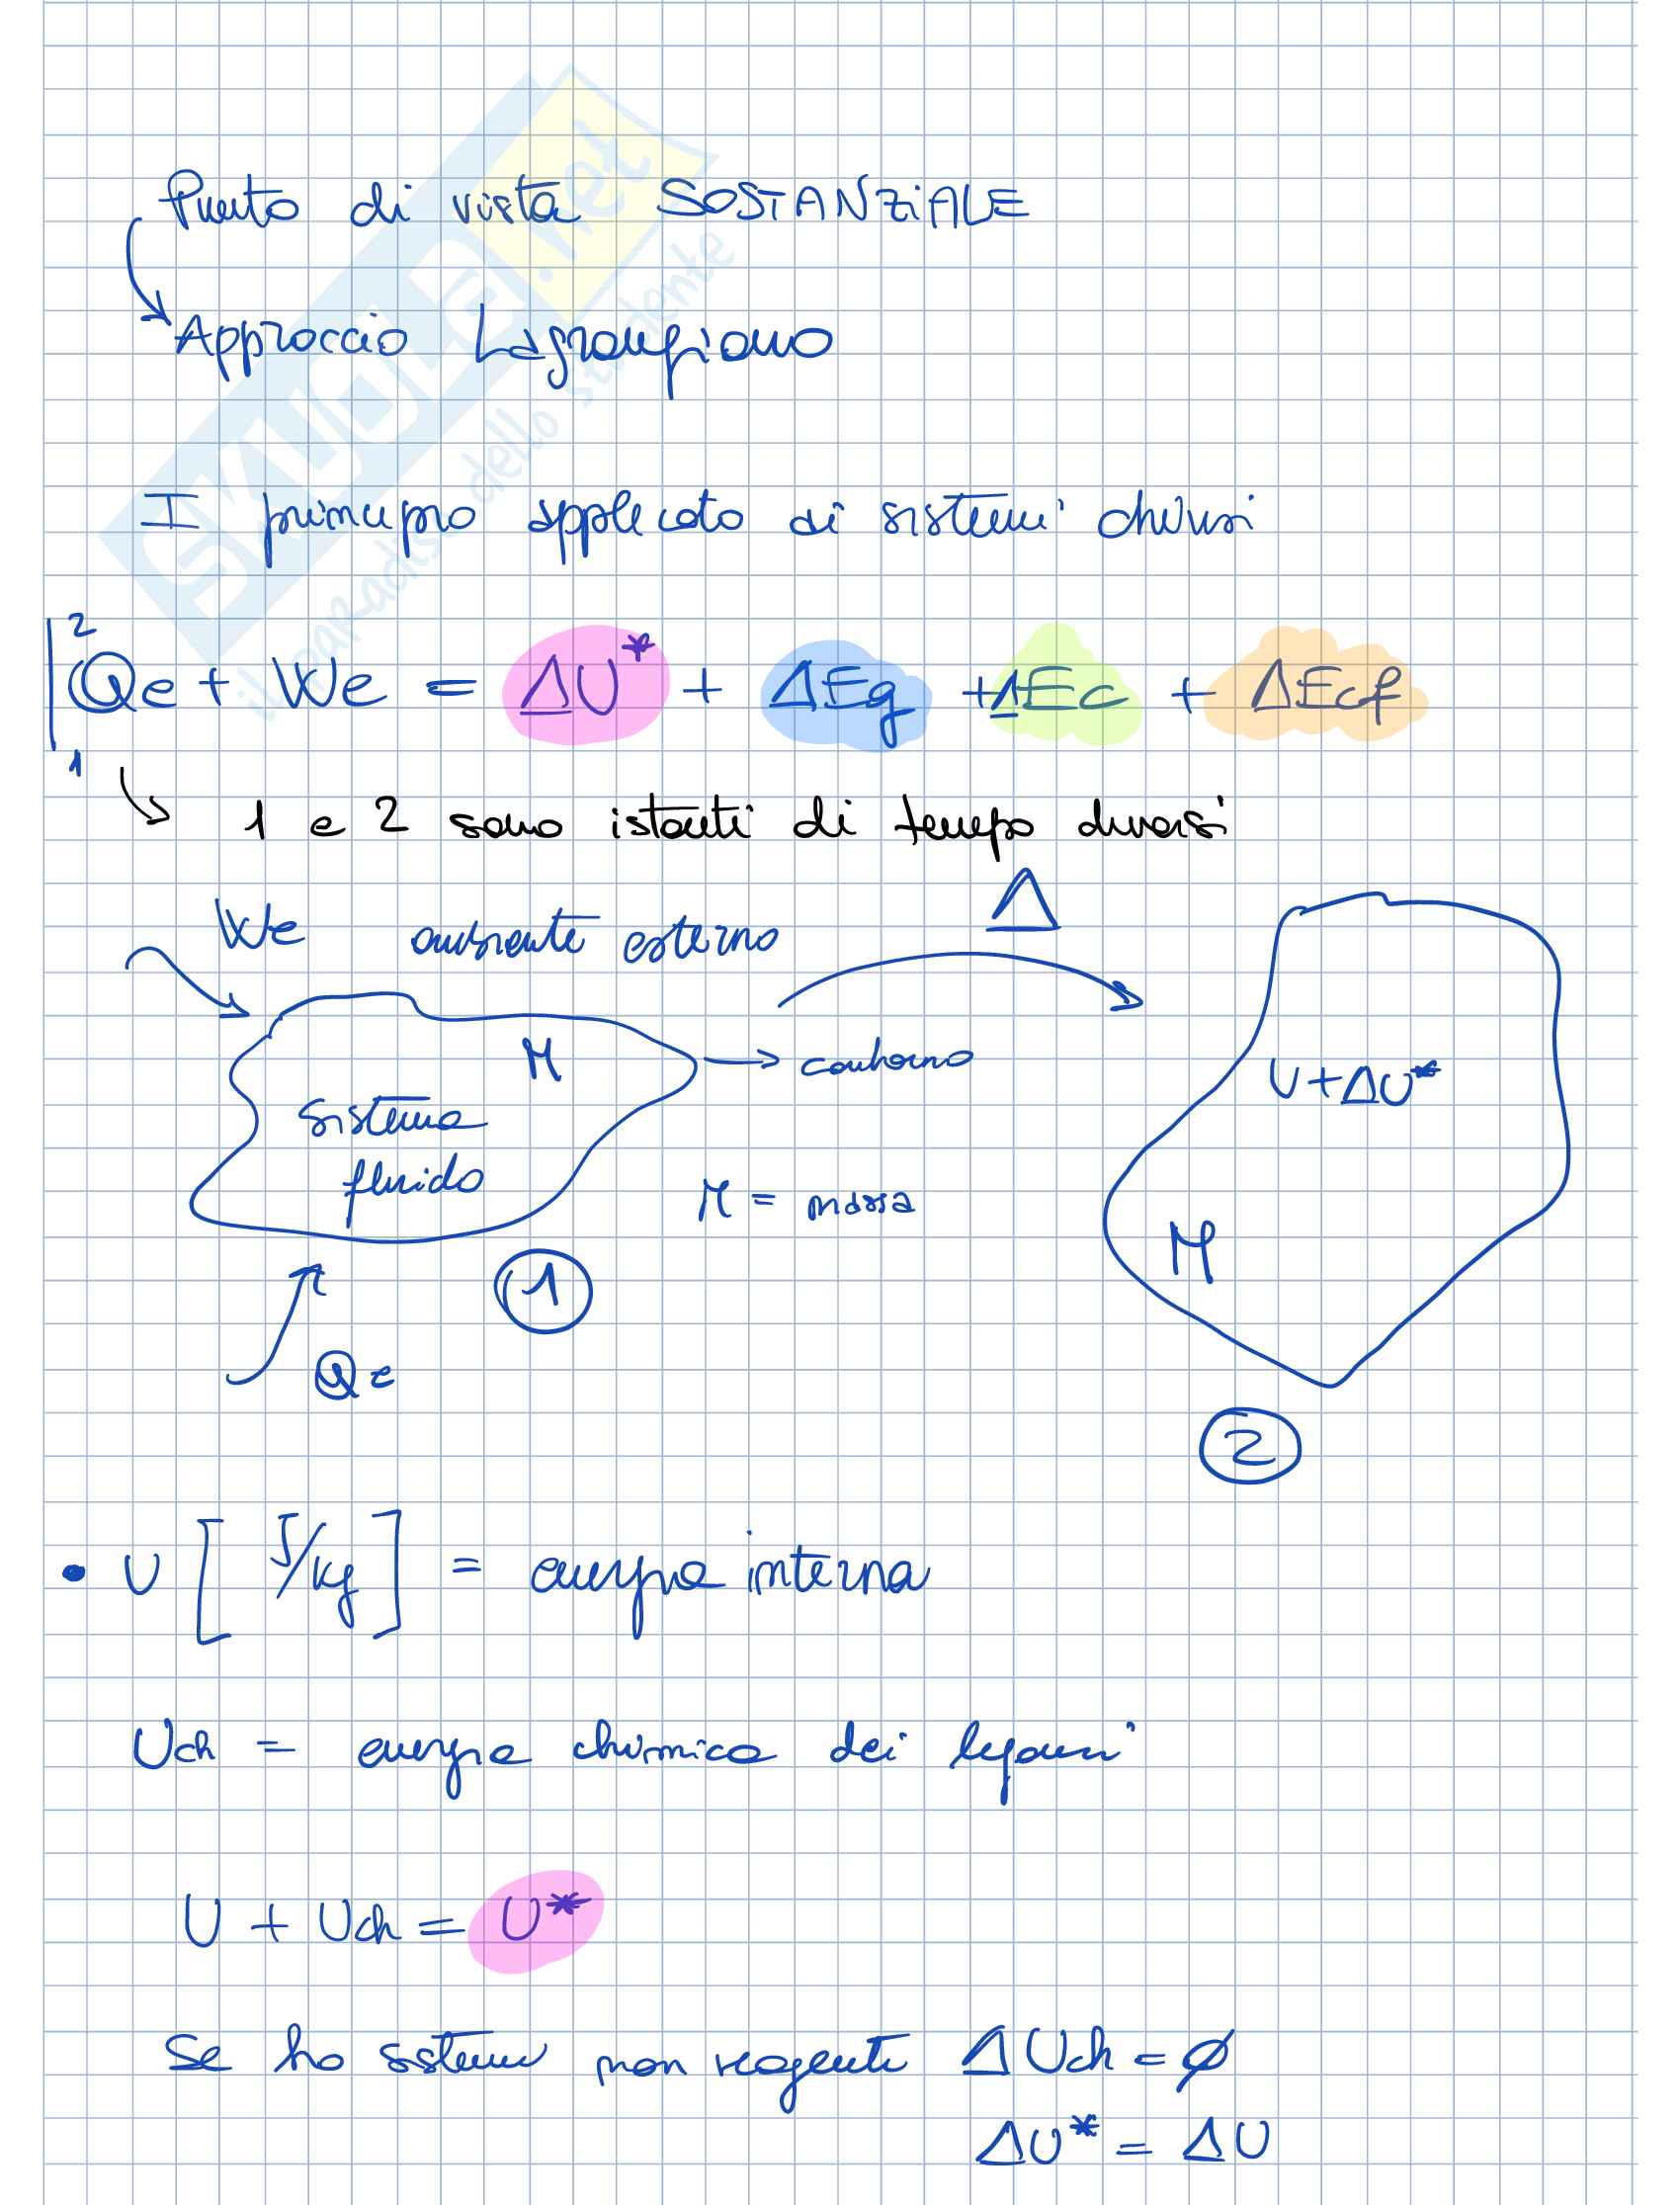 Punto di vista SOSTANZIALE
Approccio Lagrangiano
I principio applicato ai sistemi chiusi
2
Qe + We = ΔU* + ΔEg + ΔEc + ΔEcf
1
1 e 2 sono istanti di tempo diversi
We ambiente esterno Δ
M
contorno
sistema
fluido
U+ΔU*
M = massa
M
1
Qe
2
• U [J/kg] = energia interna
Uch = energia chimica dei legami
U + Uch = U*
Se ho sistemi non reagenti ΔUch = ∅
ΔU* = ΔU
SKUOLA.net
il paradiso dello studente